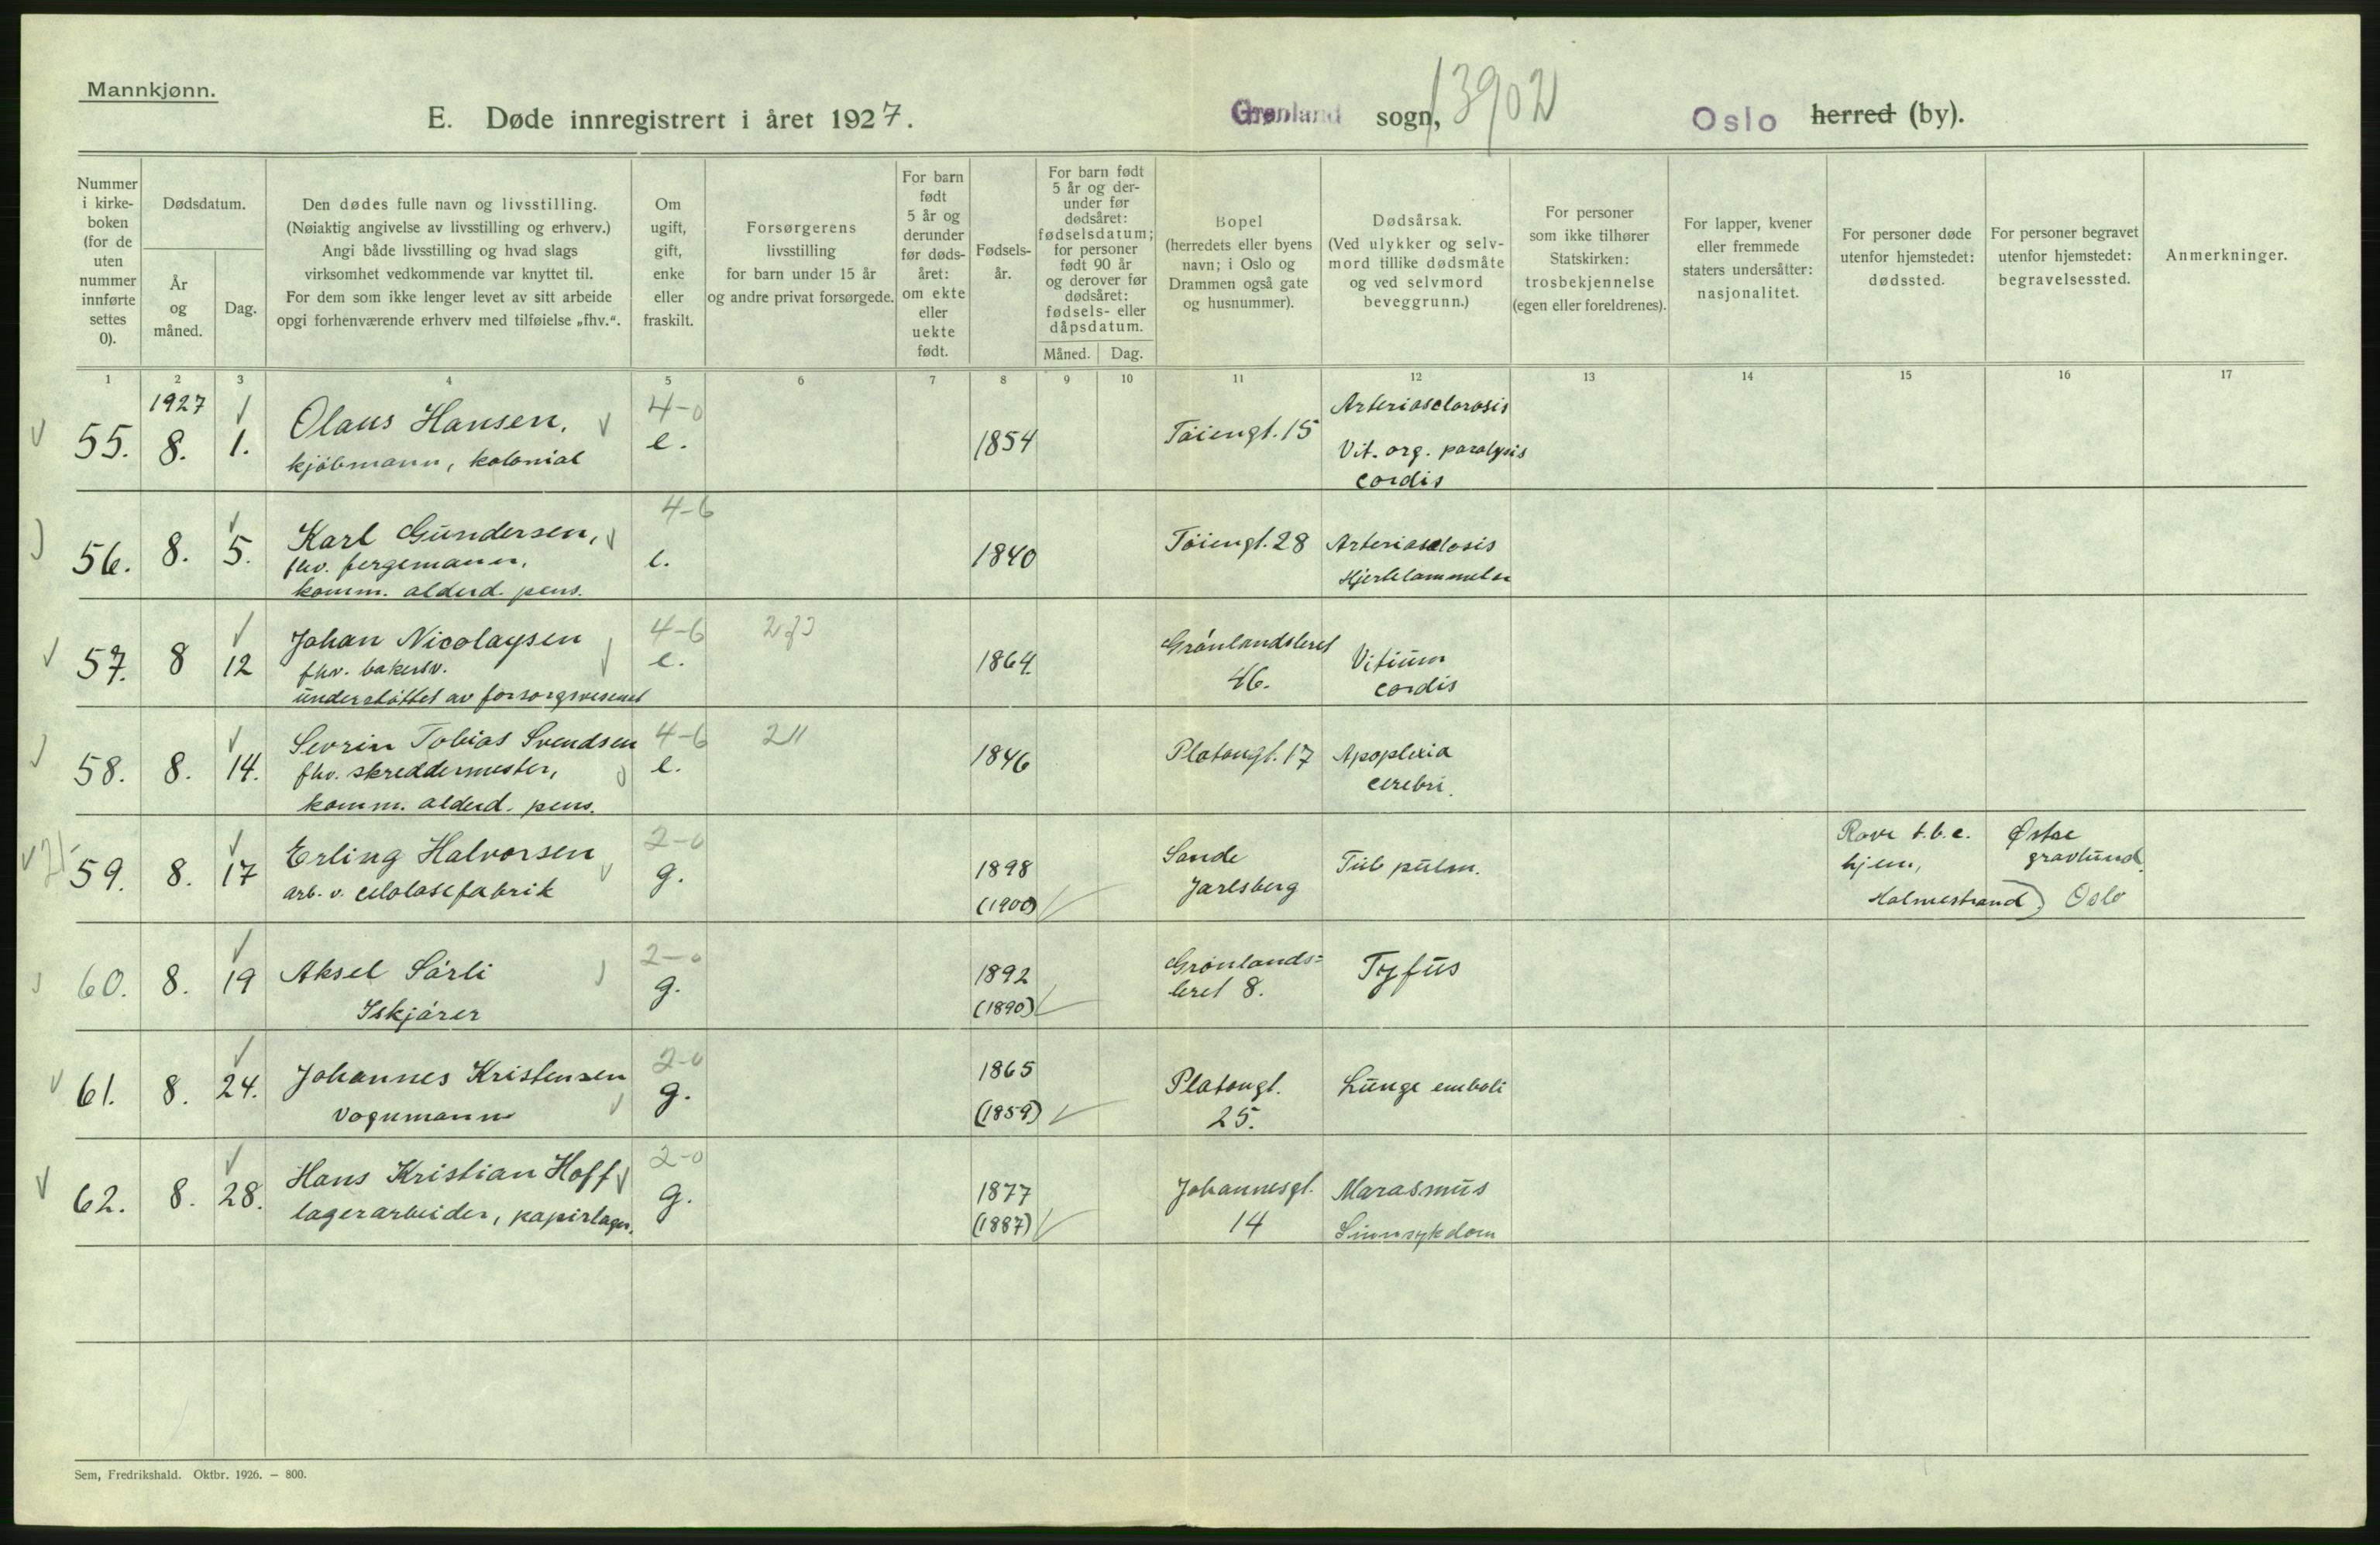 Mannkjønn.
E. Døde innregistrert i året 1927.
Grønland sogn, 13902
Oslo herred (by).
Nummer i kirke-boken (for de uten nummer innførte settes 0).
Dødsdatum.
År og måned.
Dag.
Den dødes fulle navn og livsstilling.
(Nøiaktig angivelse av livsstilling og erhverv.)
Angi både livsstilling og hvad slags
virksomhet vedkommende var knyttet til.
For dem som ikke lenger levet av sitt arbeide
opgi forhenværende erhverv med tilføielse „fhv.“.
Om ugift, gift, enke eller fraskilt.
Forsørgerens livsstilling for barn under 15 år og andre privat forsørgede.
For barn født 5 år og derunder før døds-året: om ekte eller uekte født.
Fødsels-år.
For barn født 5 år og der-under før dødsåret: fødselsdatum; for personer født 90 år og derover før dødsåret: fødsels- eller dåpsdatum.
Måned. Dag.
Bopel (herredets eller byens navn; i Oslo og Drammen også gate og husnummer).
Dødsårsak. (Ved ulykker og selv-mord tillike dødsmåte og ved selvmord beveggrunn.)
For personer som ikke tilhører Statskirken: trosbekjennelse (egen eller foreldrenes).
For lapper, kvener eller fremmede staters undersåtter: nasjonalitet.
For personer døde utenfor hjemstedet: dødssted.
For personer begravet utenfor hjemstedet: begravelsessted.
Anmerkninger.
1 2 3 4 5 6 7 8 9 10 11 12 13 14 15 16 17
1927 4-0 Arteriosclorosis
55. 8. 1. Olaus Hansen, e. 1854 Töiengt. 15 Vit. org. paralysis
kjöbmann, kolonial cordis
4-6
56. 8. 5. Karl Gundersen, e. 1840 Töiengt. 28 Arteriosclosis
fhv. fergemann, Hjertelammelse
komm. alderd. pens.
57. 8 12 Johan Nicolaysen 4-6 e. 1864. Grönlandsleret Vitium
fhv. bakersv. 46. cordis
understöttet av forsorgsvesenet
58. 8. 14. Sevrin Tobias Svendsen 4-6 211 e. 1846 Platougt. 17 Apoplexia
fhv. skreddermester, cerebri.
komm. alderd. pens.
59. 8. 17 Erling Halvorsen 2-0 g. 1898 Sande Tub pulm. Rove t.b.c. Østre
arb. v. celolosefabrik (1900) Jarlsberg hjem, gravlund.
Holmestrand Oslo
60. 8. 19 Aksel Sörli 2-0 g. 1892 Grönlands= Tyfus
Iskjörer (1890) leret 8.
61. 8. 24. Johannes Kristensen 2-0 g. 1865 Platougt. Lunge emboli
Vognmann (1859) 25.
62. 8. 28. Hans Kristian Hoff 2-0 g. 1877 Johannesgt. Marasmus
lagerarbeider, papirlager. (1887) 14 Sinnsykdom
Sem, Fredrikshald. Oktbr. 1926. — 800.